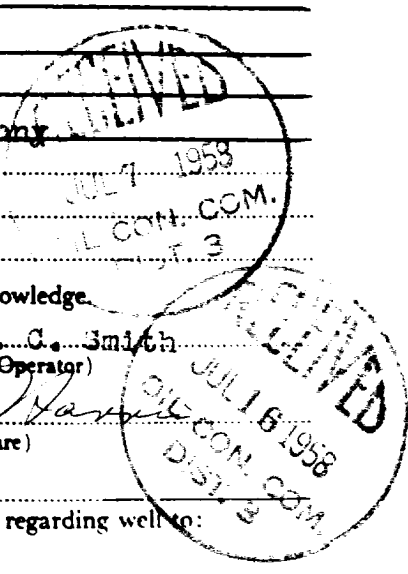 RECEIVED
JUL 7 1958
OIL CON. COM.
DIST. 3
owledge.
. C. Smith
Operator)
RECEIVED
JUL 16 1958
OIL CON. COM.
DIST. 3
re)
regarding well to: